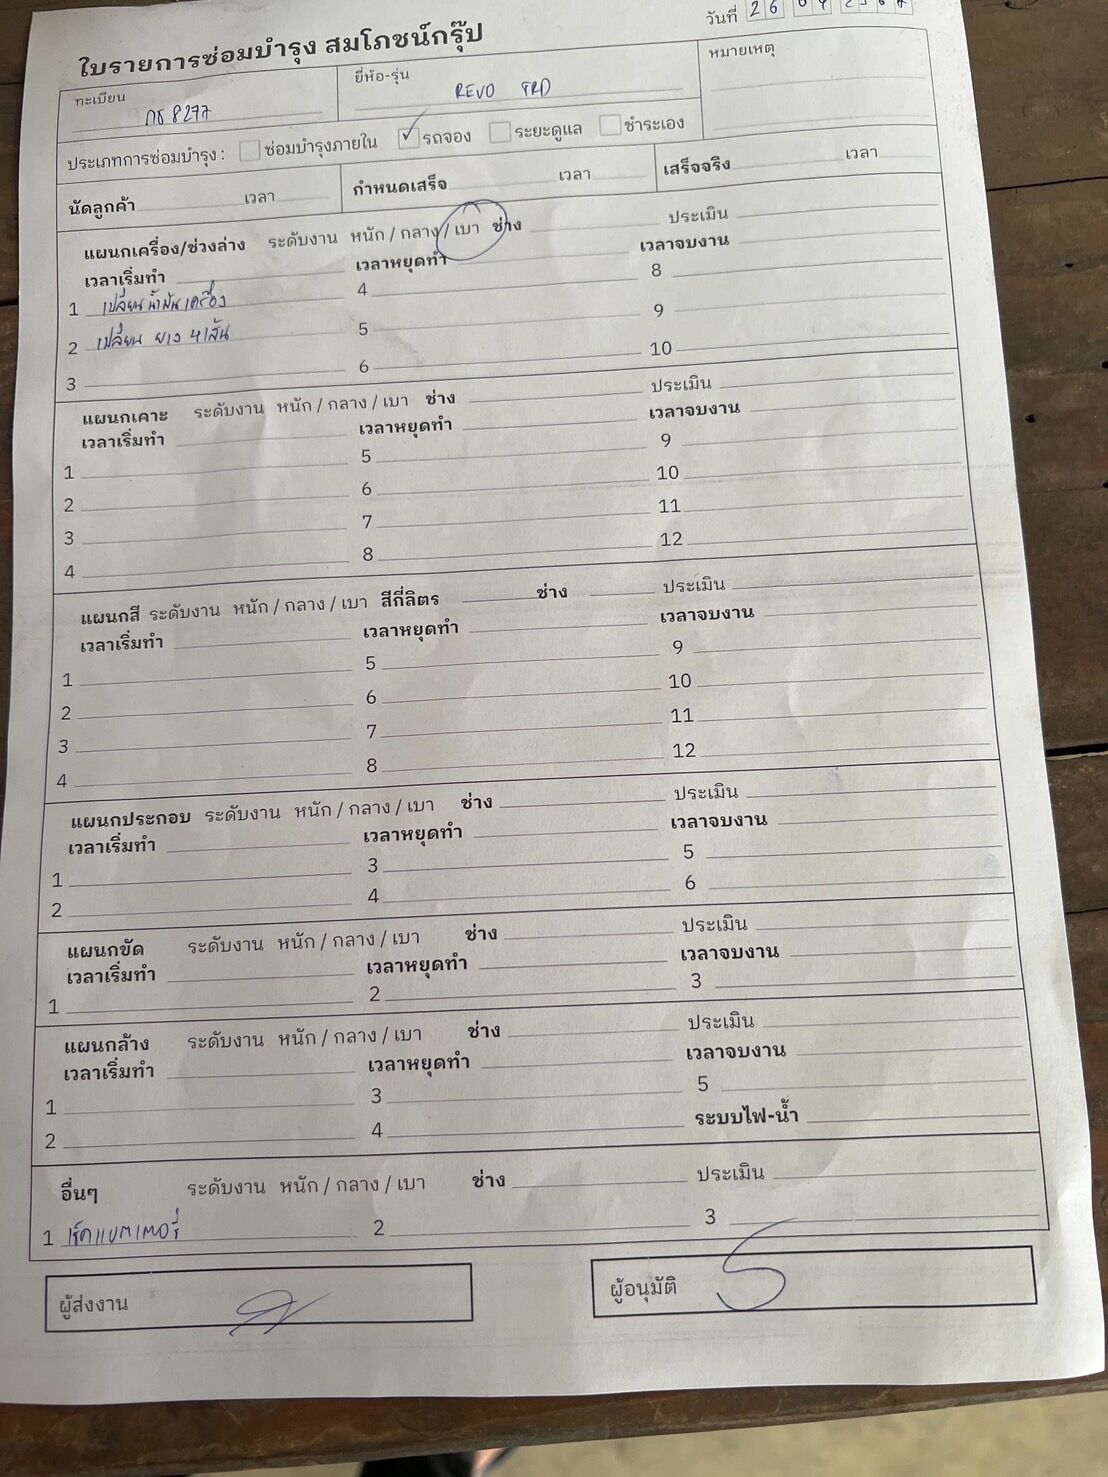 ใบรายการซ่อมบำรุง สมโภชน์กรุ๊ป
วันที่ 26
ทะเบียน 8277
ยี่ห้อ-รุ่น REVO TRD
หมายเหตุ
ประเภทการซ่อมบำรุง : ซ่อมบำรุงภายใน ✓ รถจอง ระยะดูแล ชำระเอง
นัดลูกค้า เวลา กำหนดเสร็จ เวลา เสร็จจริง เวลา
แผนกเครื่อง/ช่วงล่าง ระดับงาน หนัก / กลาง / เบา ช่าง ประเมิน
เวลาเริ่มทำ เวลาหยุดทำ เวลาจบงาน
1 เปลี่ยนน้ำมันเครื่อง 4 8
2 เปลี่ยน ยาง 4 เส้น 5 9
3 6 10
แผนกเคาะ ระดับงาน หนัก / กลาง / เบา ช่าง ประเมิน
เวลาเริ่มทำ เวลาหยุดทำ เวลาจบงาน
1 5 9
2 6 10
3 7 11
4 8 12
แผนกสี ระดับงาน หนัก / กลาง / เบา สีกี่ลิตร ช่าง ประเมิน
เวลาเริ่มทำ เวลาหยุดทำ เวลาจบงาน
1 5 9
2 6 10
3 7 11
4 8 12
แผนกประกอบ ระดับงาน หนัก / กลาง / เบา ช่าง ประเมิน
เวลาเริ่มทำ เวลาหยุดทำ เวลาจบงาน
1 3 5
2 4 6
แผนกขัด ระดับงาน หนัก / กลาง / เบา ช่าง ประเมิน
เวลาเริ่มทำ เวลาหยุดทำ เวลาจบงาน
1 2 3
แผนกล้าง ระดับงาน หนัก / กลาง / เบา ช่าง ประเมิน
เวลาเริ่มทำ เวลาหยุดทำ เวลาจบงาน
1 3 5
2 4 ระบบไฟ-น้ำ
อื่นๆ ระดับงาน หนัก / กลาง / เบา ช่าง ประเมิน
1 เช็คแบตเตอรี่ 2 3
ผู้ส่งงาน
ผู้อนุมัติ